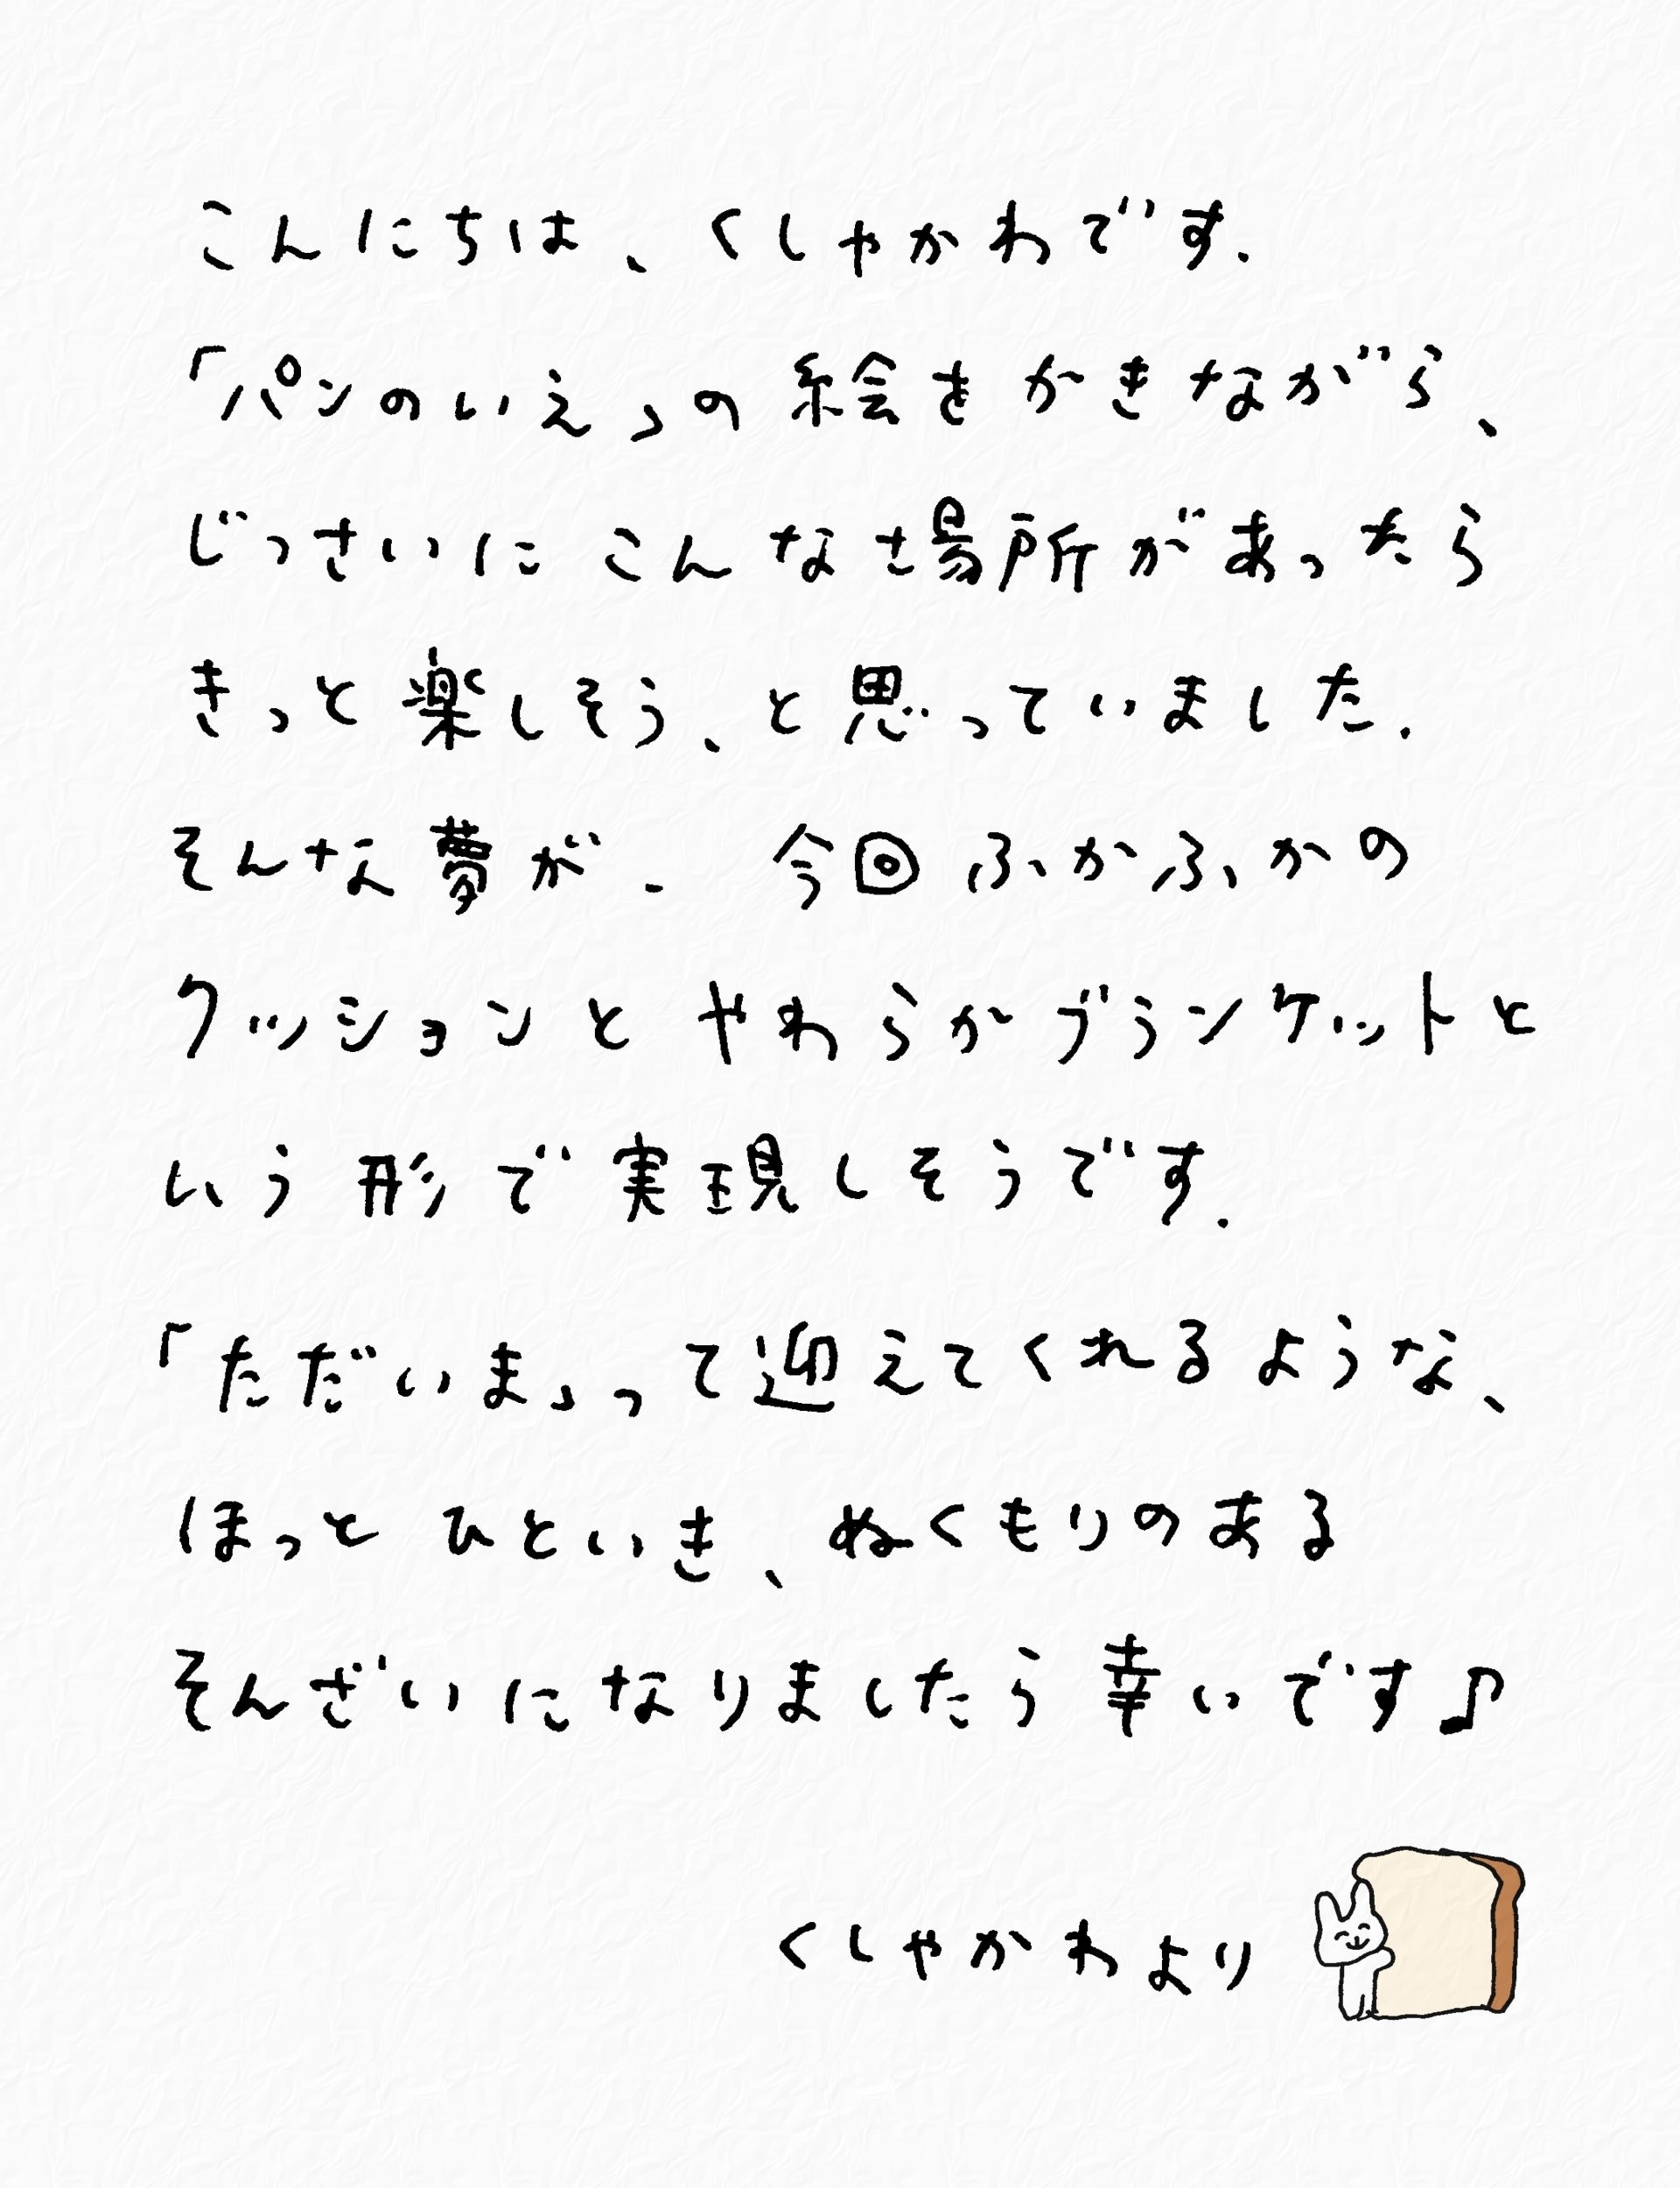 こんにちは、くしゃかわです.
「パンのいえ」の絵をかきながら、
じっさいにこんな場所があったら
きっと楽しそう、と思っていました.
そんな夢が. 今回ふかふかの
クッションとやわらかブランケットと
いう形で実現しそうです.
「ただいま」って迎えてくれるような、
ほっとひといき、ぬくもりのある
そんざいになりましたら幸いです♪
くしゃかわより